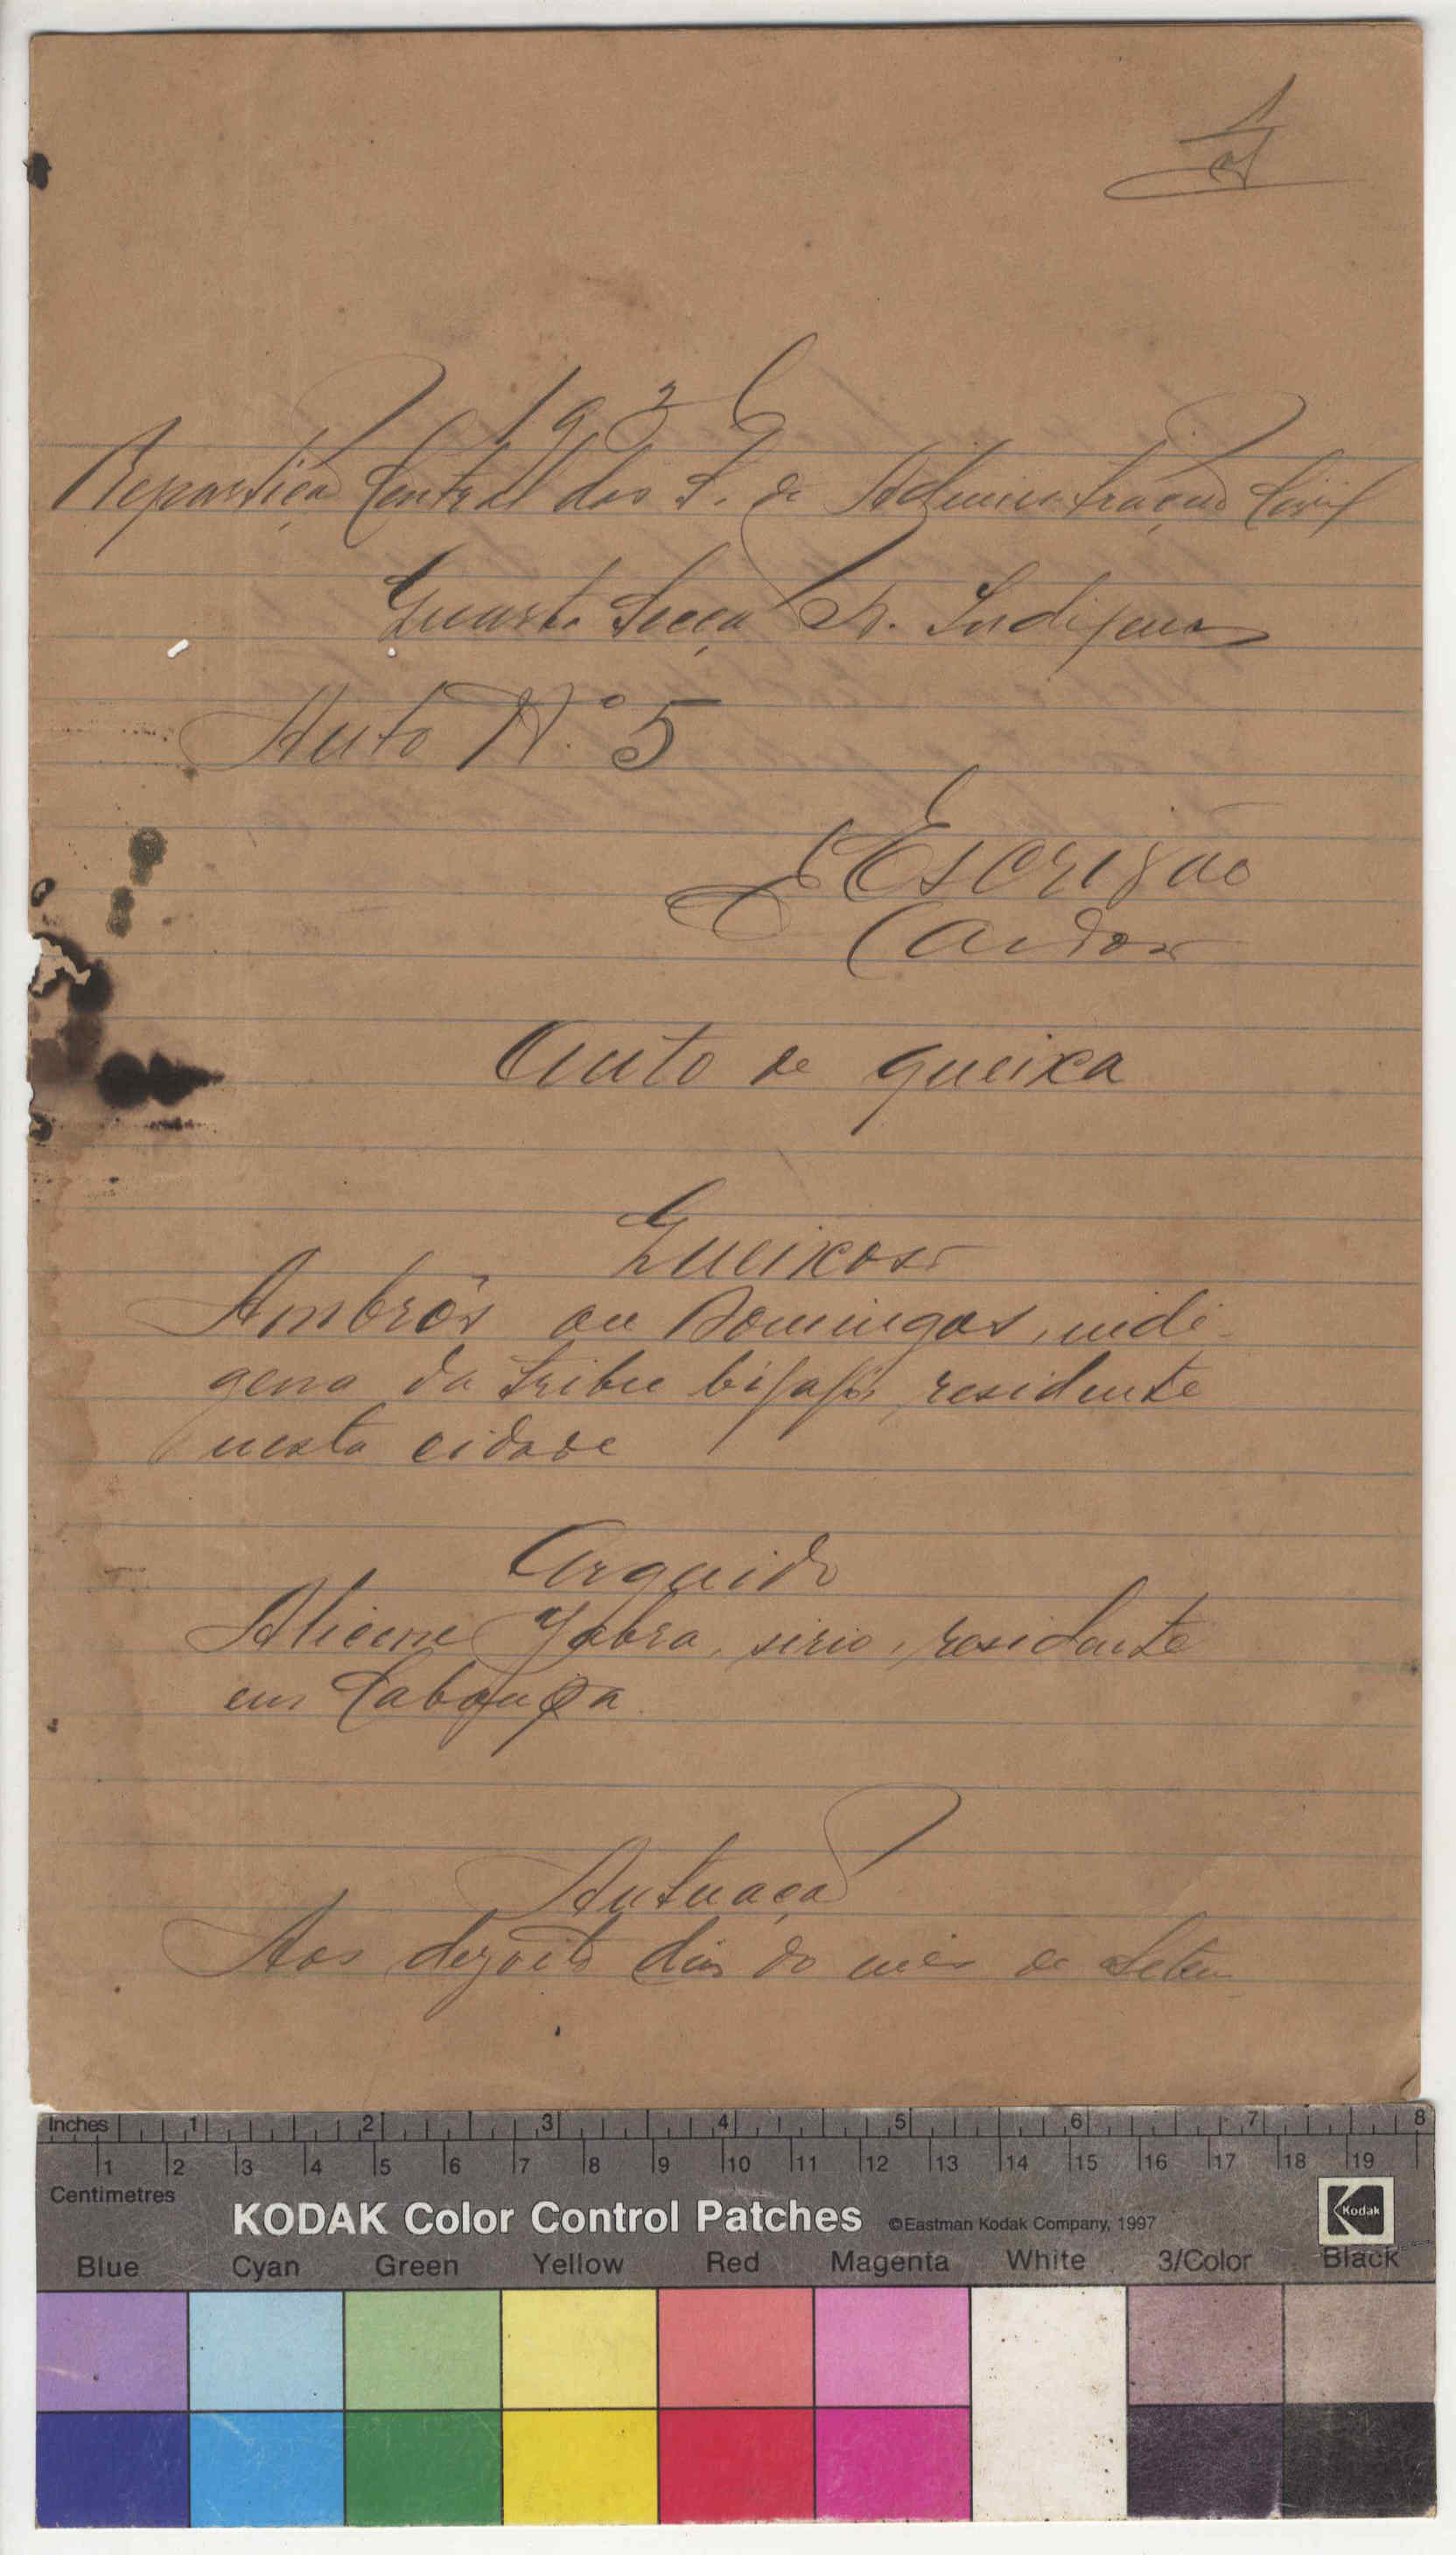 1936
Repartição Central dos S. de Administração Civil
Quarta Secção N. Indigenas
Auto N.º 5
O Escrivão
Auto de queixa
Queixoso
Ambrós ou Domingos, indi-
gena da tribu bijagós, residente
nesta cidade
Arguido
Yabra, sirio, residente
em
Autuação
Aos dezoito dias do mês de Setem-
Inches 1 2 3 4 5 6 7 8
1 2 3 4 5 6 7 8 9 10 11 12 13 14 15 16 17 18 19
Centimetres
KODAK Color Control Patches ©Eastman Kodak Company, 1997 Kodak
Blue Cyan Green Yellow Red Magenta White 3/Color Black